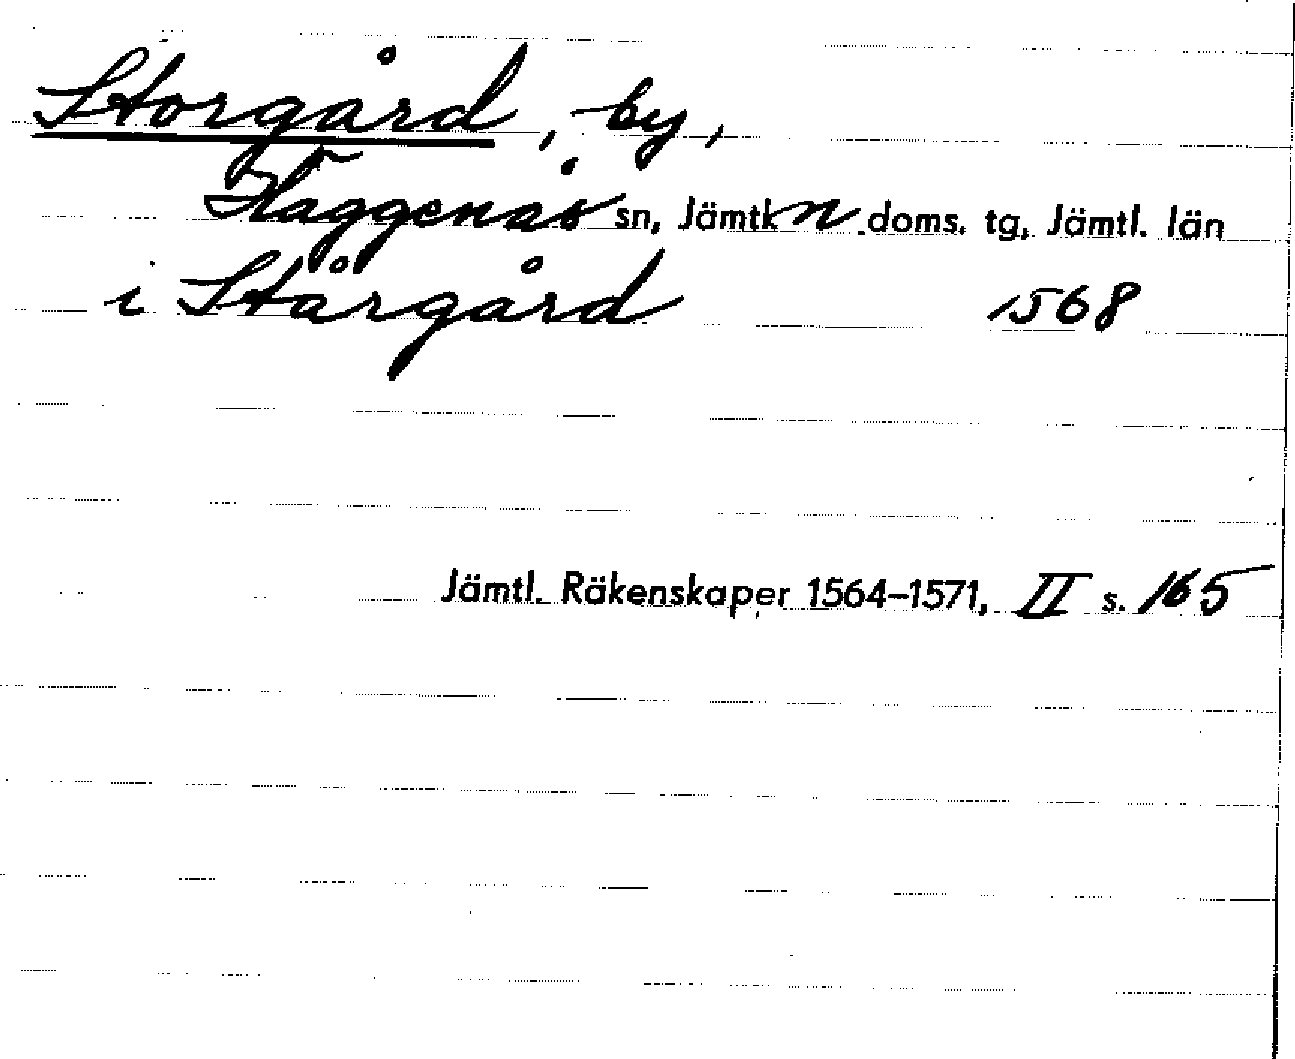 Storgård, by,
Häggenås sn, Jämtk n doms. tg, Jämtl. län
i Stårgård 1568
Jämtl. Räkenskaper 1564–1571, II s. 165